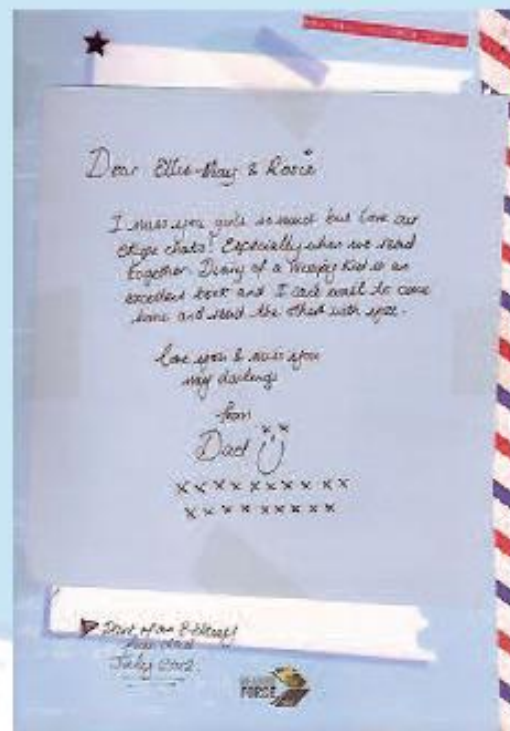 Dear Ellie-May & Rosie
I miss you girls so much but love our
skype chats! Especially when we read
together. Diary of a Wimpy Kid is an
excellent book and I can't wait to come
home and read the others with you.
love you & miss you
my darlings
from
Dad
x x x x x x x x x x
x x x x x x x x x
July
FORCE